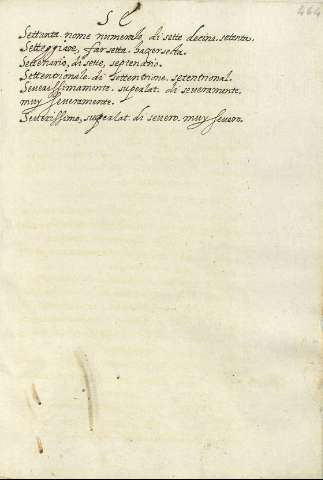 S E
464
Settanta nome numerale, di sette decine. setenta.
Setteggiare, far setta. hazer secta.
Settenario, di sette, septenario.
Settentrionale. di settentrione. setentrional.
Severissimamente. superlat. di severamente.
muy severamente.
Severissimo, superlat. di severo. muy severo.